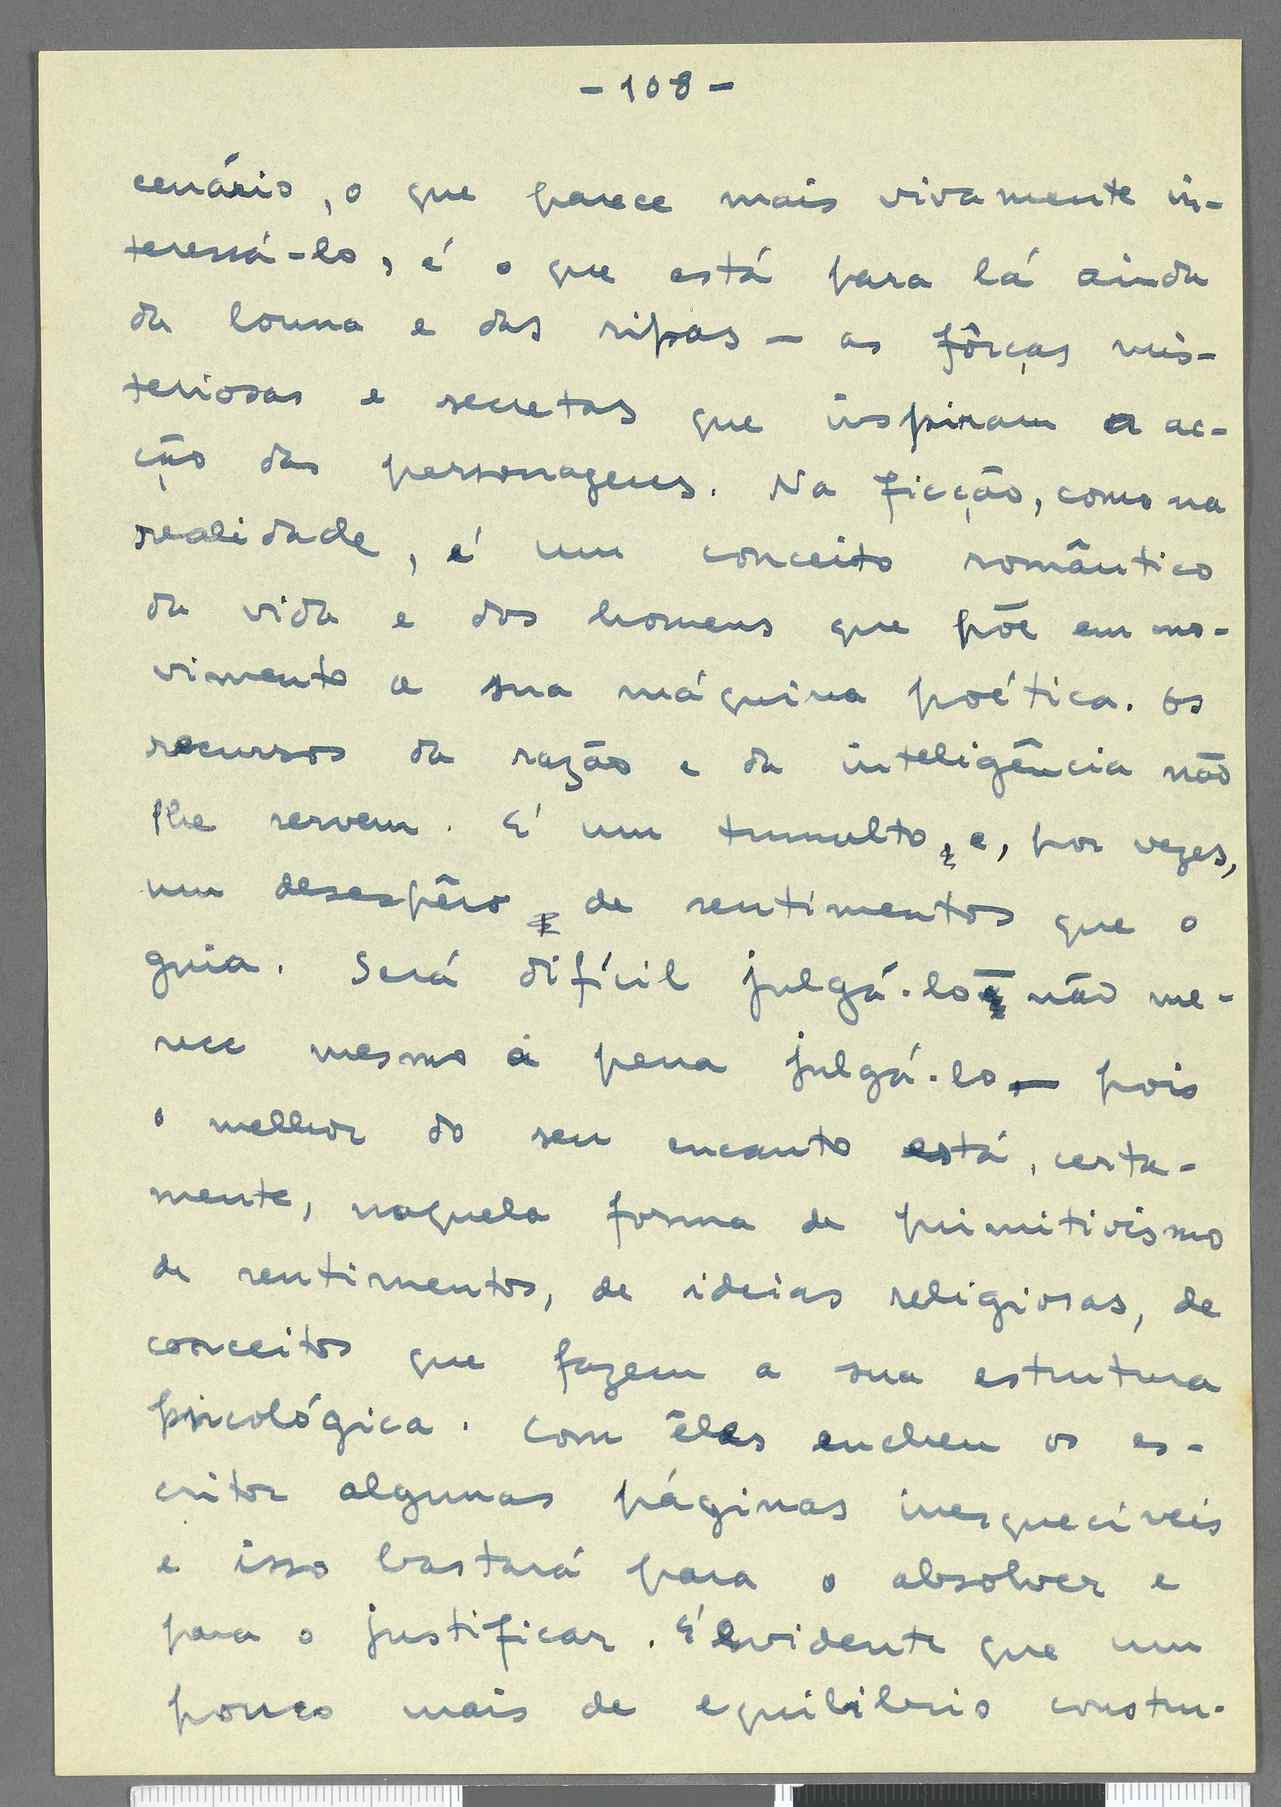 - 108 -
cenário, o que parece mais vivamente in-
teressá-lo, é o que está para lá ainda
da louna e das ripas - as fôrças mis-
teriosas e secretas que inspiram a ac-
ção das personagens. Na ficção, como na
realidade, é um conceito romântico
da vida e dos homens que põe em mo-
vimento a sua máquina poética. Os
recursos da razão e da inteligência não
lhe servem. É um tumulto, e, por vezes,
um desespêro, de sentimentos que o
guia. Será difícil julgá-lo - não me-
rece mesmo a pena julgá-lo, - pois
o melhor do seu encanto está, certa-
mente, naquela forma de primitivismo
de sentimentos, de ideias religiosas, de
conceitos que fazem a sua estrutura
psicológica. Com êles encheu os es-
critor algumas páginas inesquecíveis
e isso bastará para o absolver e
para o justificar. É evidente que um
pouco mais de equilibrio constru-